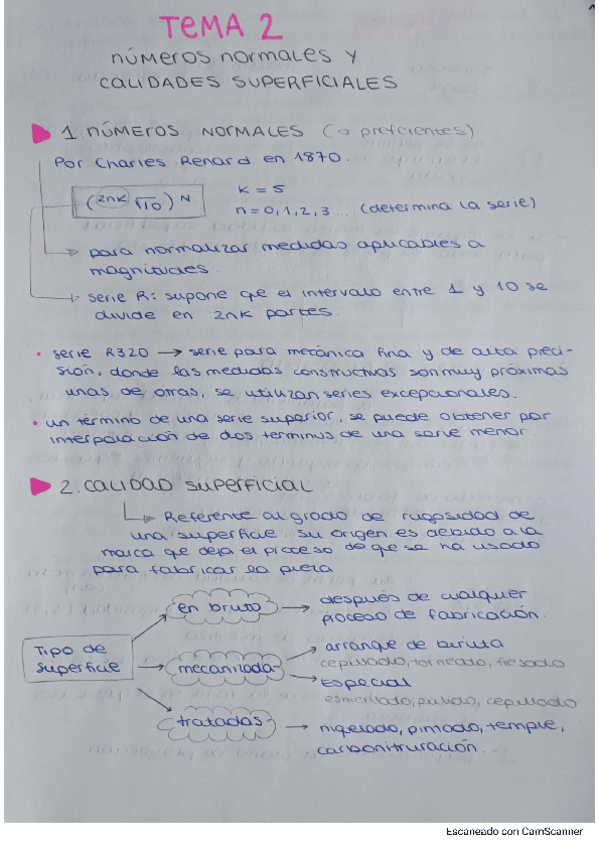 TEMA 2
números normales y
CALIDADES SUPERFICIALES
1 NÚMEROS NORMALES (o preferentes)
Por Charles Renard en 1870.
(2nk √10) N
K = 5
n = 0, 1, 2, 3 ... (determina la serie)
para normalizar medidas aplicables a
magnitudes.
serie R: supone que el intervalo entre 1 y 10 se
divide en 2nk partes.
• serie R320 → serie para mecánica fina y de alta preci-
sión, donde las medidas constructivas son muy próximas
unas de otras, se utilizan series excepcionales.
• un término de una serie superior, se puede obtener por
interpolación de dos terminus de una serie menor.
2. CALIDAD superficial
Referente al grado de rugosidad de
una superficie. su origen es debido a la
marca que deja el proceso de que se ha usado
para fabricar la pieza
Tipo de
superficie
en bruto → después de cualquier
proceso de fabricación.
mecanizada → arranque de biruta
cepillado, torneado, fresado
Especial
esmerilado, pulido, cepillado
tratadas → niquelado, pintado, temple,
carbonitruración...
Escaneado con CamScanner